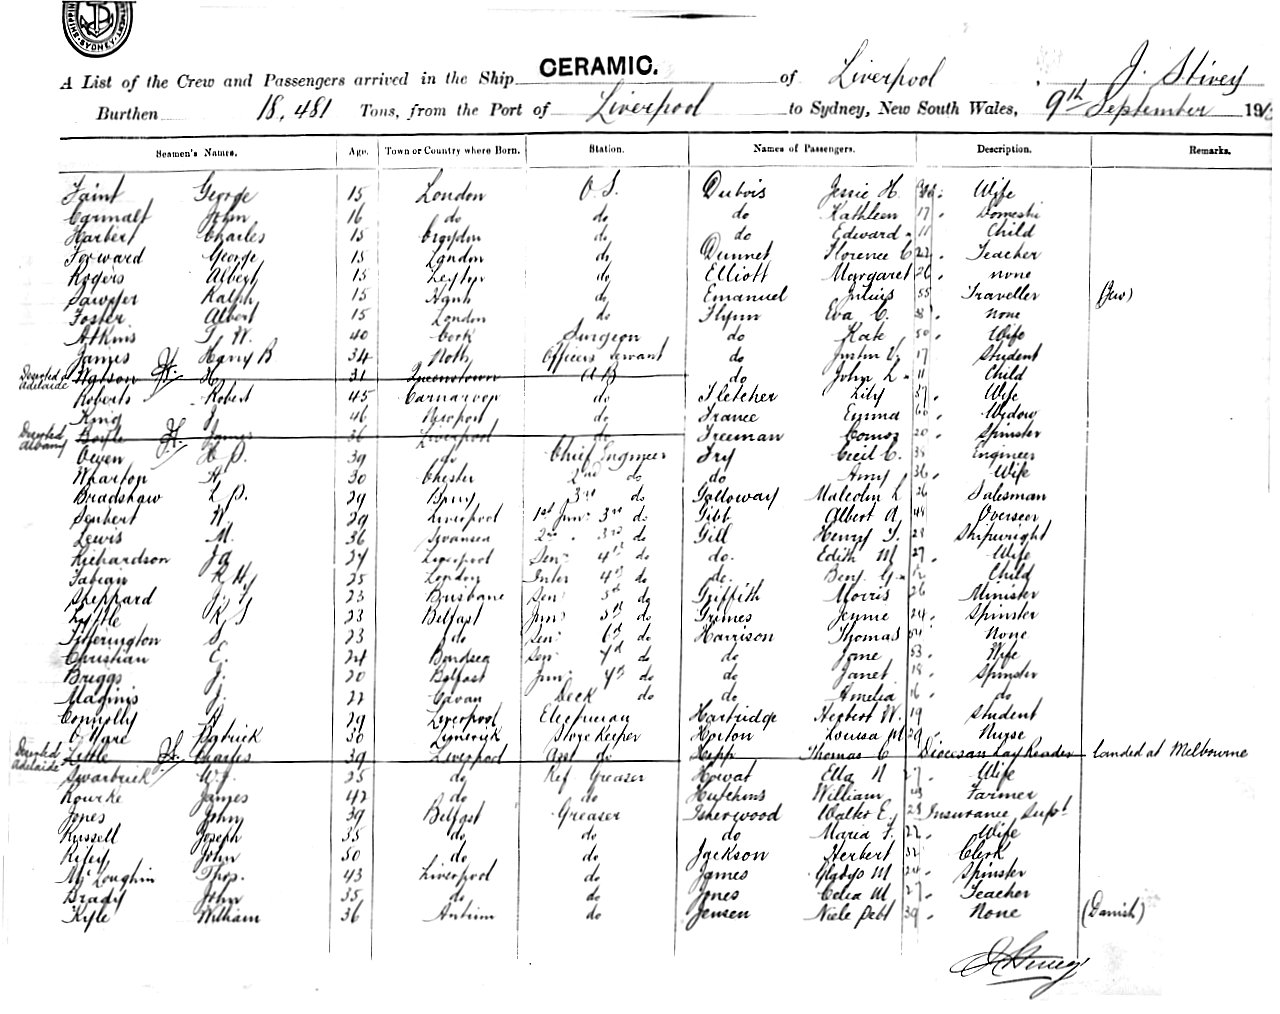 SYDNEY
A List of the Crew and Passengers arrived in the Ship CERAMIC. of Liverpool J. Stivey
Burthen 18,481 Tons, from the Port of Liverpool to Sydney, New South Wales, 9th September 19
Seamen's Names. Age. Town or Country where Born. Station. Names of Passengers. Description. Remarks.
Faint George 15 London O.S. Dubois Jessie H. Wife
Carmalt John 16 do do do Kathleen 17 Domestic
Harbert Charles 15 Croydon do do Edward 11 Child
Forward George 15 London do Dunnet Florence C 22 Teacher
Rogers Albert 15 Leyton do Elliott Margaret 26 none
Sawyer Ralph 15 do Emanuel Julius 55 Traveller (Jew)
Foster Albert 15 London do Flynn Eva C. none
Atkins T. W. 40 Cork Surgeon do Kate 50 Wife
James Harry B 34 Officers Servant do 17 Student
Deserted at Adelaide Watson H. 31 Queenstown A.B do John L 11 Child
Roberts Robert 45 Carnarvon do Fletcher Lily 37 Wife
King J. 46 Newport do France Emma 60 Widow
Deserted Albany Boyle James 36 Liverpool do Freeman 20 Spinster
Owen H. P. 39 do Chief Engineer Fry Cecil C. Engineer
Wharton A. 30 Chester 2nd do do Amy 36 Wife
Bradshaw L. P. 29 Bury 3rd do Galloway Malcolm L 26 Salesman
Seubert W. 29 Liverpool 1st Jun. 3rd do Gibb Albert A. Overseer
Lewis M. 36 Swansea 2nd " 3rd do Gill Henry T. Shipwright
Richardson 27 Liverpool Sen. 4th do do. Edith M 27 Wife
Fabian R H 25 London Inter 4th do do. Benj. G. Child
Sheppard 23 Brisbane Sen. 5th do Griffith Morris 26 Minister
Lyttle R S 23 Belfast Jun. 5th do Grimes Jennie 24 Spinster
Titherington S. 23 do Sen. 6th do Harrison Thomas None
Christian E. 24 Sen. do do Jane 53 Wife
Briggs J. 20 Belfast Jun. do do Janet 18 Spinster
Maginis J. 22 Cavan Deck do do Amelia 16 do
Connolly A 29 Liverpool Electrician Hartridge Herbert W. 19 Student
O'Hare Patrick 30 Limerick Storekeeper Horton Louisa M 29 Nurse
Deserted Adelaide Little Charles 39 Liverpool Asst do Hepp Thomas C Diocesan Lay Reader landed at Melbourne
Swarbrick W. J. 25 do Ref Greaser Howat Ella N 27 Wife
Rourke James 42 do do Hutchins William Farmer
Jones John 39 Belfast Greaser Isherwood Walter E. 23 Insurance Supt
Russell Joseph 35 do do do Maria F. 22 Wife
Riley John 50 do do Jackson Herbert 32 Clerk
McLoughlin Thos. 43 Liverpool do James Gladys M 24 Spinster
Brady John 35 do do Jones Celia M 27 Teacher
Kyle William 36 Antrim do Jensen Niels 39 None (Danish)
J Stivey